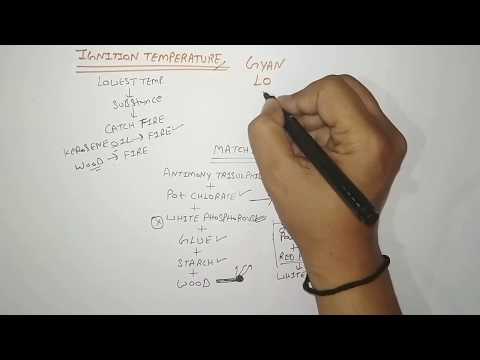 IGNITION TEMPERATURE,
GYAN
LO
LOWEST TEMP
↓
SUBSTANCE
↓
CATCH FIRE
KEROSENE OIL → FIRE ✓
WOOD → FIRE
MATCH
ANTIMONY TRISULPHID
+
POT CHLORATE ✓
+
WHITE PHOSPHOROUS
+
GLUE ✓
+
STARCH ✓
+
WOOD
RED
WHITE